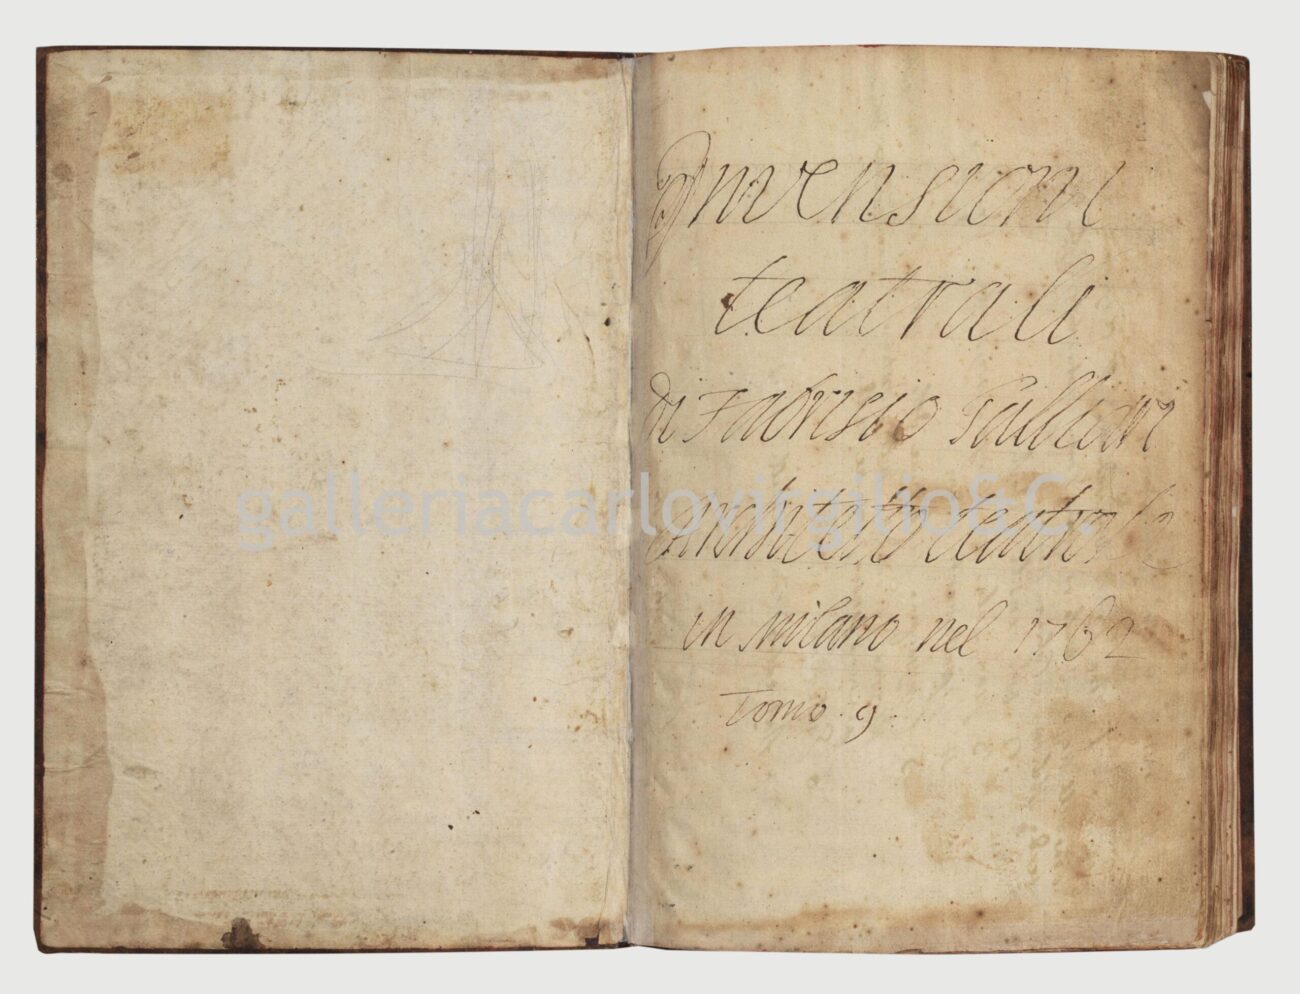 Invensioni
teatrali
di Fabrisio Galliari
Architetto teatrale
in Milano nel 1762
Tomo 9.
galleriacarlovirgilio&C.